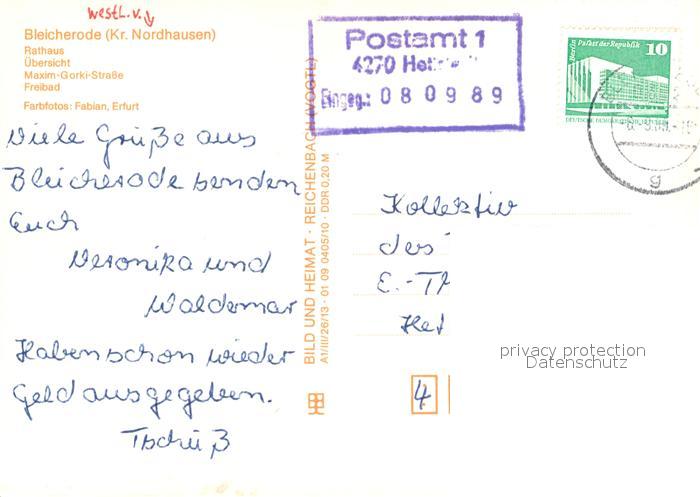 westl. v.
Bleicherode (Kr. Nordhausen)
Rathaus
Übersicht
Maxim-Gorki-Straße
Freibad
Farbfotos: Fabian, Erfurt
Viele Grüße aus
Bleicherode senden
Euch
Veronika und
Waldemar
Haben schon wieder
Geld ausgegeben.
Tschüß
BILD UND HEIMAT · REICHENBACH (VOGTL)
A1/III/26/13 · 01 09 0405/10 · DDR 0,20 M
Postamt 1
4270
Eingeg.: 080989
Berlin Palast der Republik 10
g
Kollektiv
des
E.-Th
Het
4
privacy protection
Datenschutz